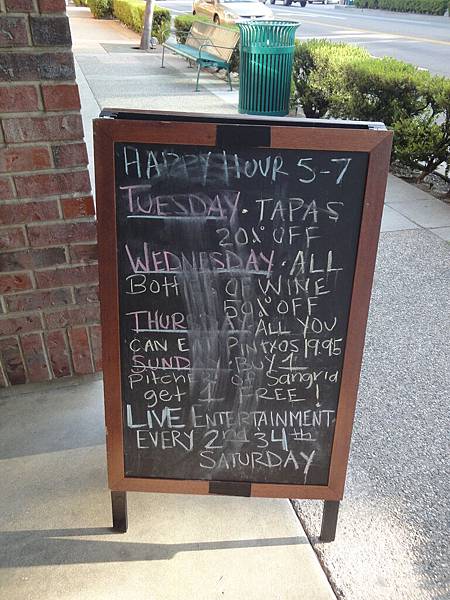 HAPPY HOUR 5-7
TUESDAY. TAPAS
20% OFF
WEDNESDAY. ALL
OF WINE
50% OFF
ALL YOU
CAN PINTXOS 19.95
BUY 1
Pitcher of Sangria
get 1 FREE!
LIVE ENTERTAINMENT
EVERY 2nd 34th
SATURDAY